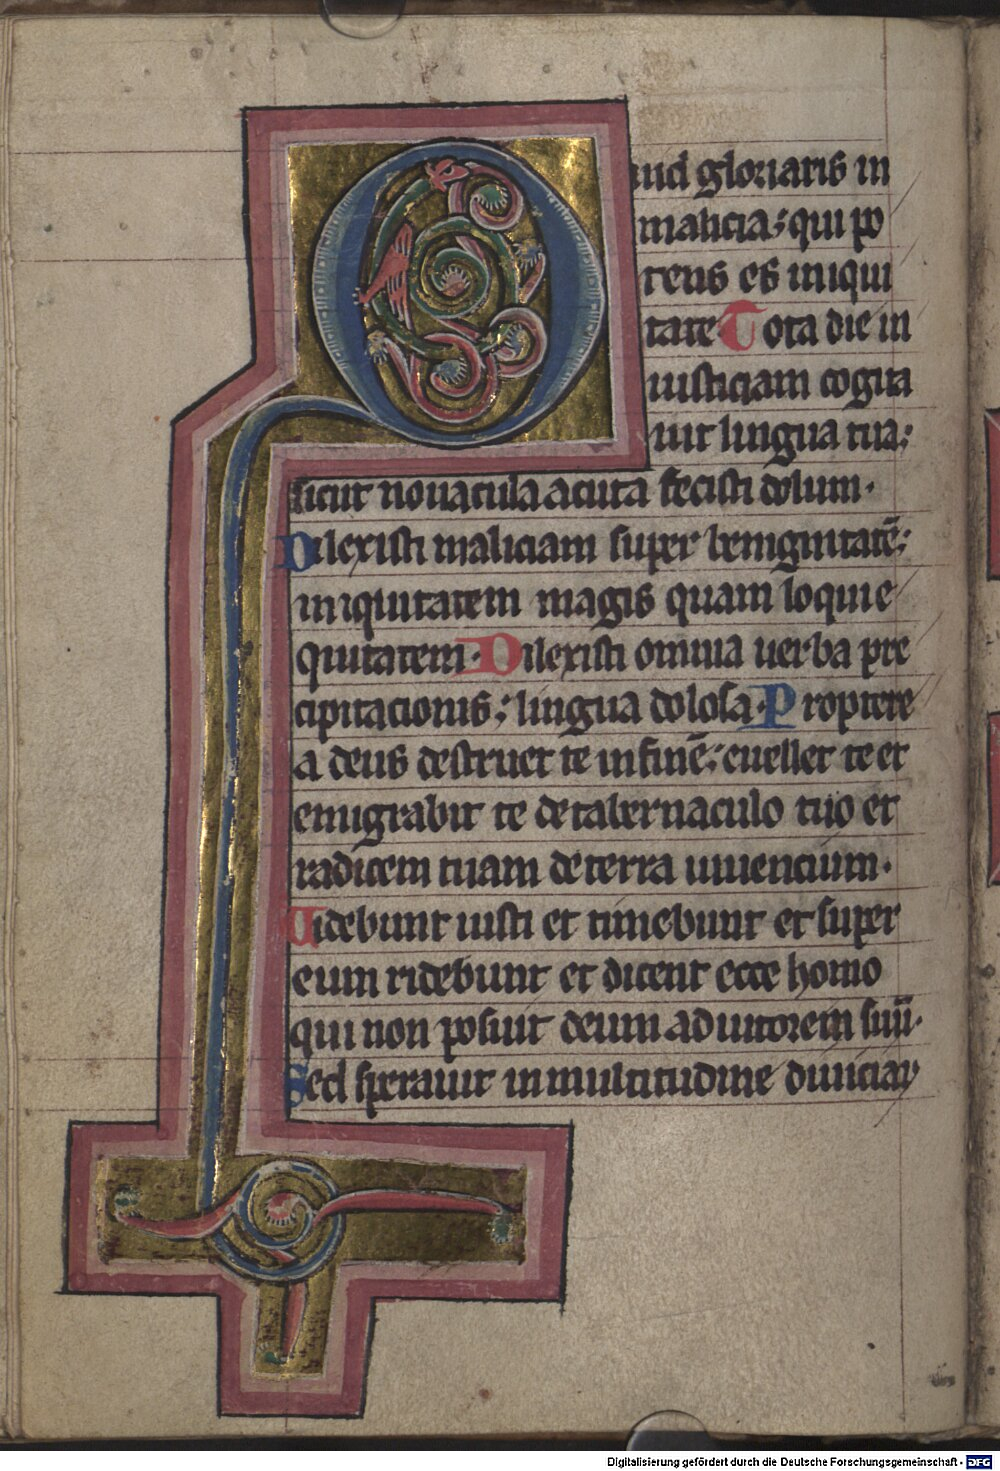 Quid gloriaris in
malicia; qui po
tens es iniqui
tate. Tota die in
iusticiam cogita
uit lingua tua;
sicut nouacula acuta fecisti dolum.
Dilexisti maliciam super benignitatē;
iniquitatem magis quam loqui e
quitatem. Dilexisti omnia uerba pre
cipitacionis; lingua dolosa. Proptere
a deus destruet te in finē; euellet te et
emigrabit te de tabernaculo tuo et
radicem tuam de terra uiuencium.
Uidebunt iusti et timebunt et super
eum ridebunt et dicent ecce homo
qui non posuit deum adiutorem suū.
Sed sperauit in multitudine diuiciaꝝ
Digitalisierung gefördert durch die Deutsche Forschungsgemeinschaft - DFG